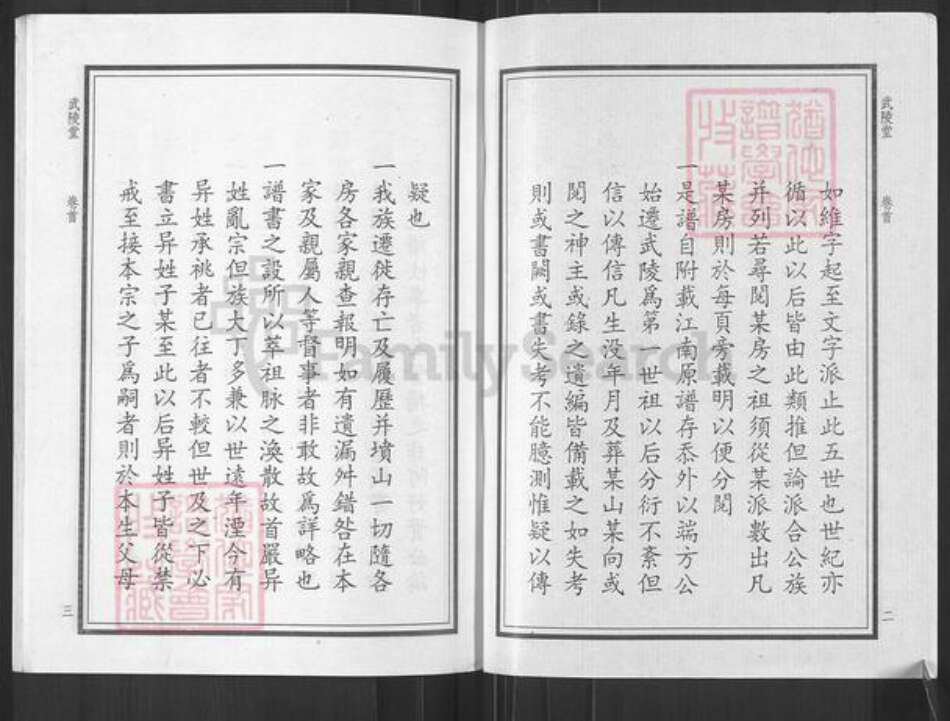 武陵堂
卷首
二
如維字起至文字派止此五世也世紀亦
循以此以后皆由此類推但論派合公族
并列若尋閱某房之祖須從某派數出凡
某房則於每頁旁載明以便分閱
一是譜自附載江南原譜存忝外以端方公
始遷武陵爲第一世祖以后分衍不紊但
信以傳信凡生没年月及葬某山某向或
閱之神主或錄之遺編皆備載之如失考
則或書闕或書失考不能臆測惟疑以傳
疑也
一我族遷徙存亡及履歷并墳山一切隨各
房各家親查報明如有遺漏舛錯咎在本
家及親屬人等督事者非敢故爲詳略也
一譜書之設所以萃祖脉之渙散故首嚴异
姓亂宗但族大丁多兼以世遠年湮今有
异姓承祧者已往者不較但世及之下必
書立异姓子某至此以后异姓子皆從禁
戒至接本宗之子爲嗣者則於本生父母
武陵堂
卷首
三
FamilySearch